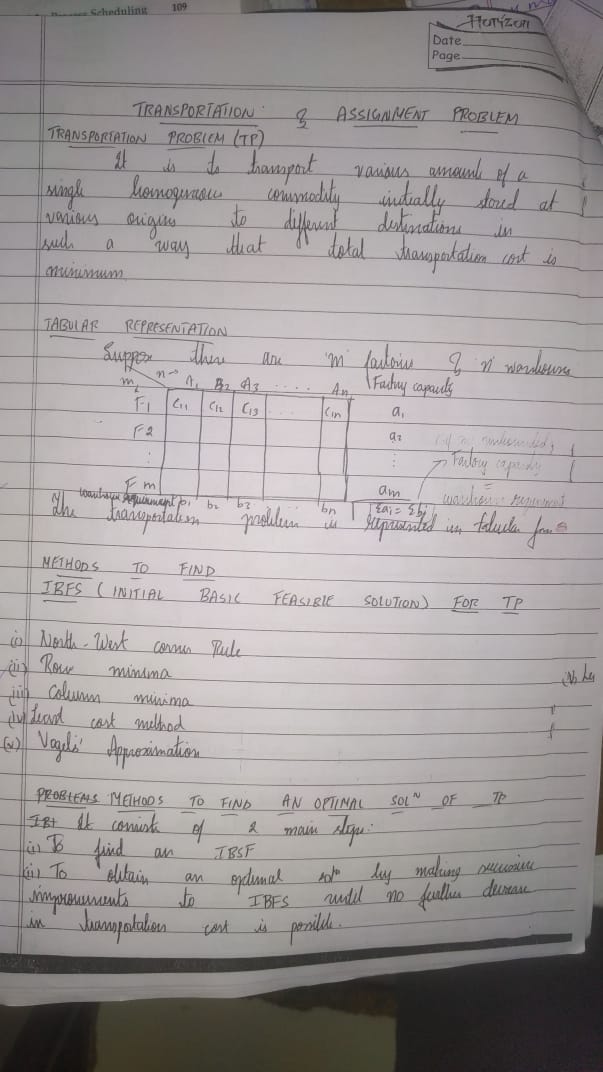 Process Scheduling 109
Horizon
Date
Page
TRANSPORTATION & ASSIGNMENT PROBLEM
TRANSPORTATION PROBLEM (TP)
It is to transport various amounts of a
single homogeneous commodity initially stored at
various origins to different destinations in
such a way that total transportation cost is
minimum
TABULAR REPRESENTATION
Suppose there are 'm' factories & 'n' warehouses
m↓ n→ A1 B2 A3 .... An Factory capacity
F1 C11 C12 C13 C1n a1
F2 a2
: :
Fm am
warehouse requirement b1 b2 b3 bn Σai = Σbj
Factory capacity
=
warehouse requirement
The transportation problem is represented in tabular form
METHODS TO FIND
IBFS (INITIAL BASIC FEASIBLE SOLUTION) FOR TP
(i) North-West corner Rule
(ii) Row minima
(iii) Column minima
(iv) Least cost method
(v) Vogels' Approximation
PROBLEMS METHODS TO FIND AN OPTIMAL SOLN OF TP
IBF It consist of 2 main steps:
(i) To find an IBSF
(ii) To obtain an optimal soln by making successive
improvements to IBFS until no further decrease
in transportation cost is possible.